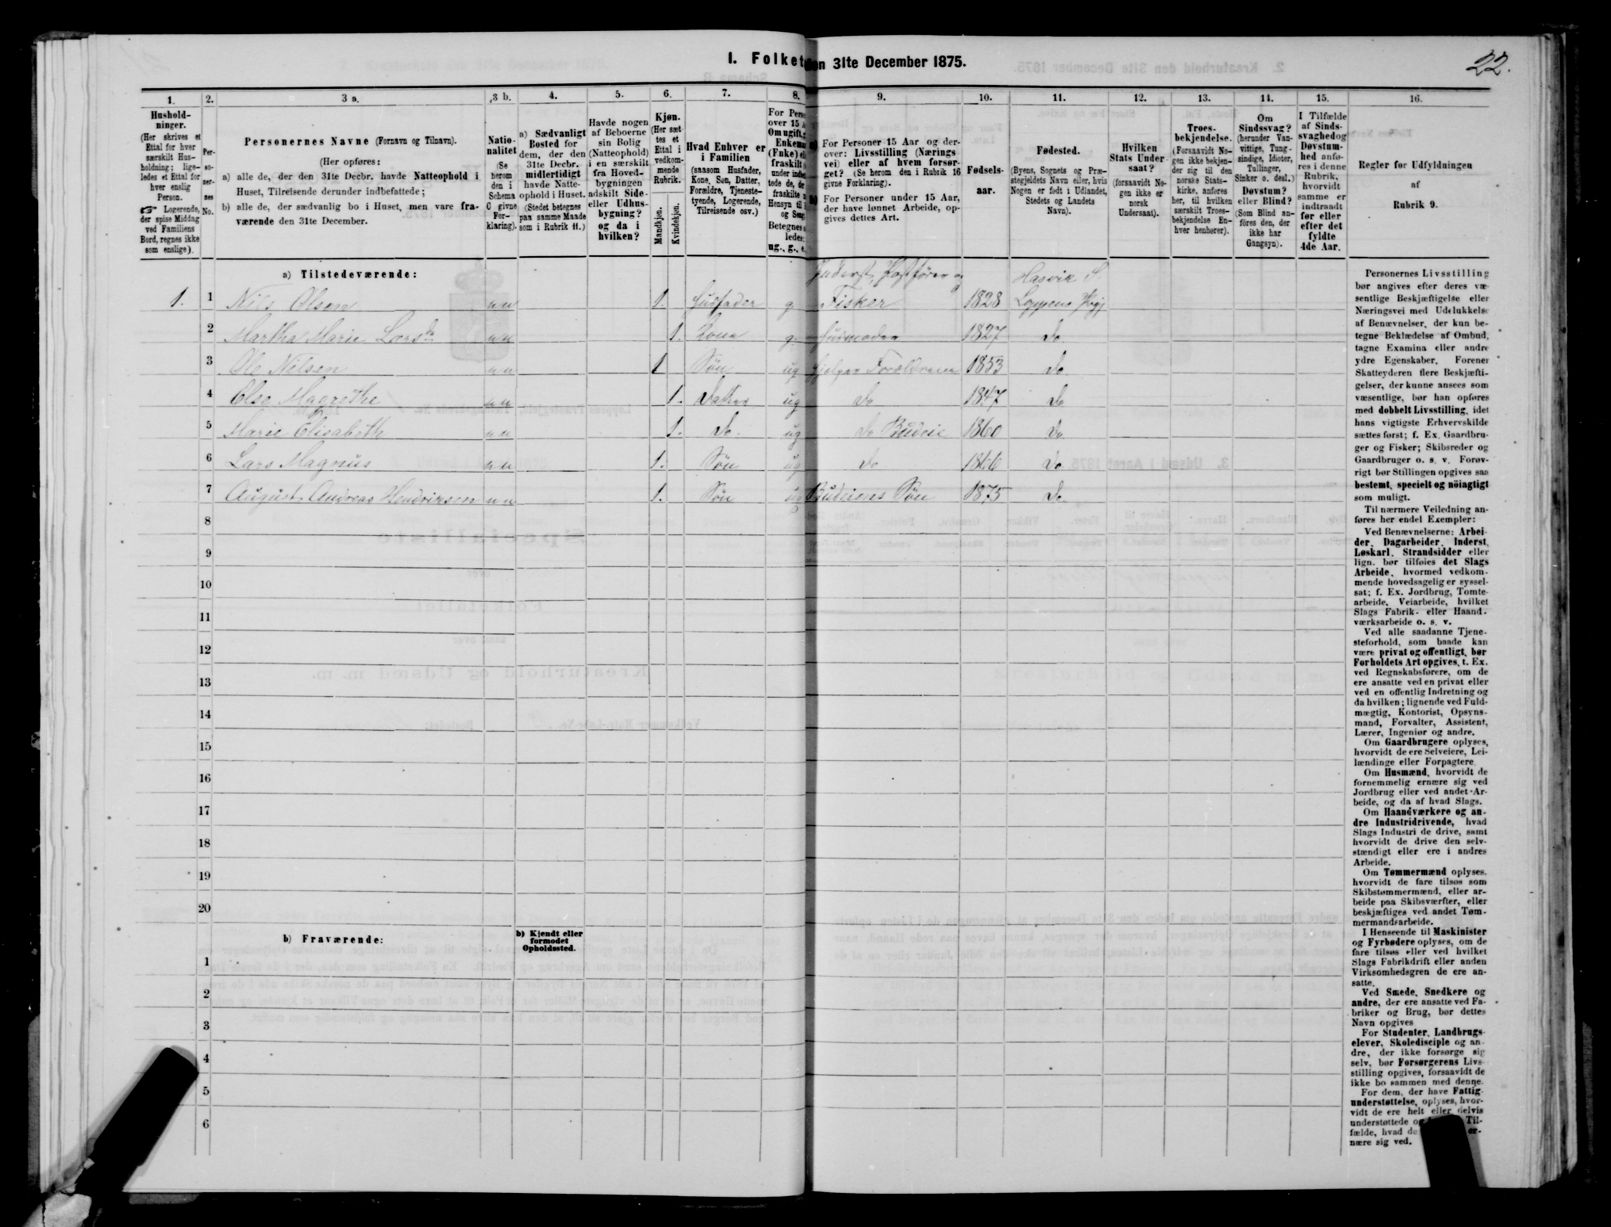 I. Folket
en 31te December 1875.
22.
1.
2.
3 a.
3 b.
4.
5.
6.
7.
8.
9.
10.
11.
12.
13.
14.
15.
16.
Hushold-
ninger.
(Her skrives et
Ettal for hver
særskilt Hus-
holdning; lige-
ledes et Ettal for
hver enslig
Person.
☞ Logerende,
der spise Middag
ved Familiens
Bord, regnes ikke
som enslige).
Per-
so-
ner-
nes
No.
Personernes Navne (Fornavn og Tilnavn).
(Her opføres:
a) alle de, der den 31te Decbr. havde Natteophold i
Huset, Tilreisende derunder indbefattede;
b) alle de, der sædvanlig bo i Huset, men vare fra-
værende den 31te December.
Natio-
nalitet
(Se
herom
den i
Schema
C givne
For-
klaring).
a) Sædvanligt
Bosted for
dem, der den
31te Decbr.
midlertidigt
havde Natte-
ophold i Huset.
(Stedet betegnes
paa samme Maade
som i Rubrik 11.)
Havde nogen
af Beboerne
sin Bolig
(Natteophold)
i en særskilt
fra Hoved-
bygningen
adskilt Side-
eller Udhus-
bygning?
og da i
hvilken?
Kjøn.
(Her sæt-
tes et
Ettal i
vedkom-
mende
Rubrik.
Mandkjøn.
Kvindekjøn.
Hvad Enhver er
i Familien
(saasom Husfader,
Kone, Søn, Datter,
Forældre, Tjeneste-
tyende, Logerende,
Tilreisende osv.)
For Pers
over 15
Om ugift,
Enkema
(Enke)
fraskilt
For Personer 15 Aar og der-
over: Livsstilling (Nærings-
vei) eller af hvem forsør-
get? (Se herom den i Rubrik 16
givne Forklaring).
For Personer under 15 Aar,
der have lønnet Arbeide, op-
gives dettes Art.
Fødsels-
aar.
Fødested.
(Byens, Sognets og Præ-
stegjeldets Navn eller, hvis
Nogen er født i Udlandet,
Stedets og Landets
Navn).
Hvilken
Stats Under-
saat?
(forsaavidt No-
gen ikke er
norsk
Undersaat).
Troes-
bekjendelse.
(Forsaavidt No-
gen ikke bekjen-
der sig til den
norske Stats-
kirke, anføres
her, til hvilken
særskilt Troes-
bekjendelse En-
hver henhører).
Om
Sindssvag?
(herunder Van-
vittige, Tung-
sindige, Idioter,
Tullinger,
Sinker o. desl.)
Døvstum?
eller Blind?
(Som Blind an-
føres den, der
ikke har
Gangsyn).
I Tilfælde
af Sinds-
svaghed og
Døvstum-
hed anfø-
res i denne
Rubrik,
hvorvidt
samme er
indtraadt
før eller
efter det
fyldte
4de Aar.
Regler før Udfyldningen
af
Rubrik 9.
a) Tilstedeværende:
1. 1 Nils Olsen n n 1. Husfader g Inderst, Husfører og Fisker 1828 Hasvik S Loppens Pgj
2 Martha Marie Larsd. n n 1. Kone g. Husmoder 1827 do
3 Ole Nilsen n n 1 Søn ug hjelper Forældrene 1853 do
4 Else Magrethe n n 1. Datter ug do 1847 do
5 Marie Elisabeth n n 1. do ug do Budeie 1860 do
6 Lars Magnus n n 1. Søn ug do 1866 do
7 August Andreas Hendriksen n n 1. Søn ug Budeiens Søn 1875 do
8
9
10
11
12
13
14
15
16
17
18
19
20
b) Fraværende:
b) Kjendt eller
formodet
Opholdssted.
1
2
3
4
5
6
Personernes Livsstilling
bør angives efter deres væ-
sentlige Beskjæftigelse eller
Næringsvei med Udelukkelse
af Benævnelser, der kun be-
tegne Beklædelse af Ombud,
tagne Examina eller andre
ydre Egenskaber. Forener
Skatteyderen flere Beskjæfti-
gelser, der kunne ansees som
væsentlige, bør han opføres
med dobbelt Livsstilling, idet
hans vigtigste Erhvervskilde
sættes først; f. Ex. Gaardbru-
ger og Fisker; Skibsreder og
Gaardbruger o. s. v. Forøv-
rigt bør Stillingen opgives saa
bestemt, specielt og nöiagtigt
som muligt.
Til nærmere Veiledning an-
føres her endel Exempler:
Ved Benævnelserne: Arbei-
der, Dagarbeider, Inderst,
Løskarl, Strandsidder eller
lign. bør tilføies det Slags
Arbeide, hvormed vedkom-
mende hovedsagelig er syssel-
sat; f. Ex. Jordbrug, Tomte-
arbeide, Veiarbeide, hvilket
Slags Fabrik- eller Haand-
værksarbeide o. s. v.
Ved alle saadanne Tjene-
steforhold, som baade kan
være privat og offentligt, bør
Forholdets Art opgives, t. Ex.
ved Regnskabsførere, om de
ere ansatte ved en privat eller
ved en offentlig Indretning og
da hvilken; lignende ved Fuld-
mægtig, Kontorist, Opsyns-
mand, Forvalter, Assistent,
Lærer, Ingeniør og andre.
Om Gaardbrugere oplyses,
hvorvidt de ere Selveiere, Lei-
lændinge eller Forpagtere.
Om Husmænd, hvorvidt de
fornemmelig ernære sig ved
Jordbrug eller ved andet Ar-
beide, og da af hvad Slags.
Om Haandværkere og an-
dre Industridrivende, hvad
Slags Industri de drive, samt
hvorvidt de drive den selv-
stændigt eller ere i andres
Arbeide.
Om Tømmermænd oplyses,
hvorvidt de fare tilsøs som
Skibstømmermænd, eller ar-
beide paa Skibsværfter, eller
beskjæftiges ved andet Tøm-
mermandsarbeide.
I Henseende til Maskinister
og Fyrbødere oplyses, om de
fare tilsøs eller ved hvilket
Slags Fabrikdrift eller anden
Virksomhedsgren de ere an-
satte.
Ved Smede, Snedkere og
andre, der ere ansatte ved Fa-
briker og Brug, bør dettes
Navn opgives
For Studenter, Landbrugs-
elever, Skoledisciple og an-
dre, der ikke forsørge sig
selv, bør Forsørgerens Livs-
stilling opgives, forsaavidt de
ikke bo sammen med denne.
For dem, der have Fattig-
understøttelse, oplyses, hvor-
vidt de ere helt eller delvis
understøttede og Til-
fælde, hvad de er-
nære sig ved.